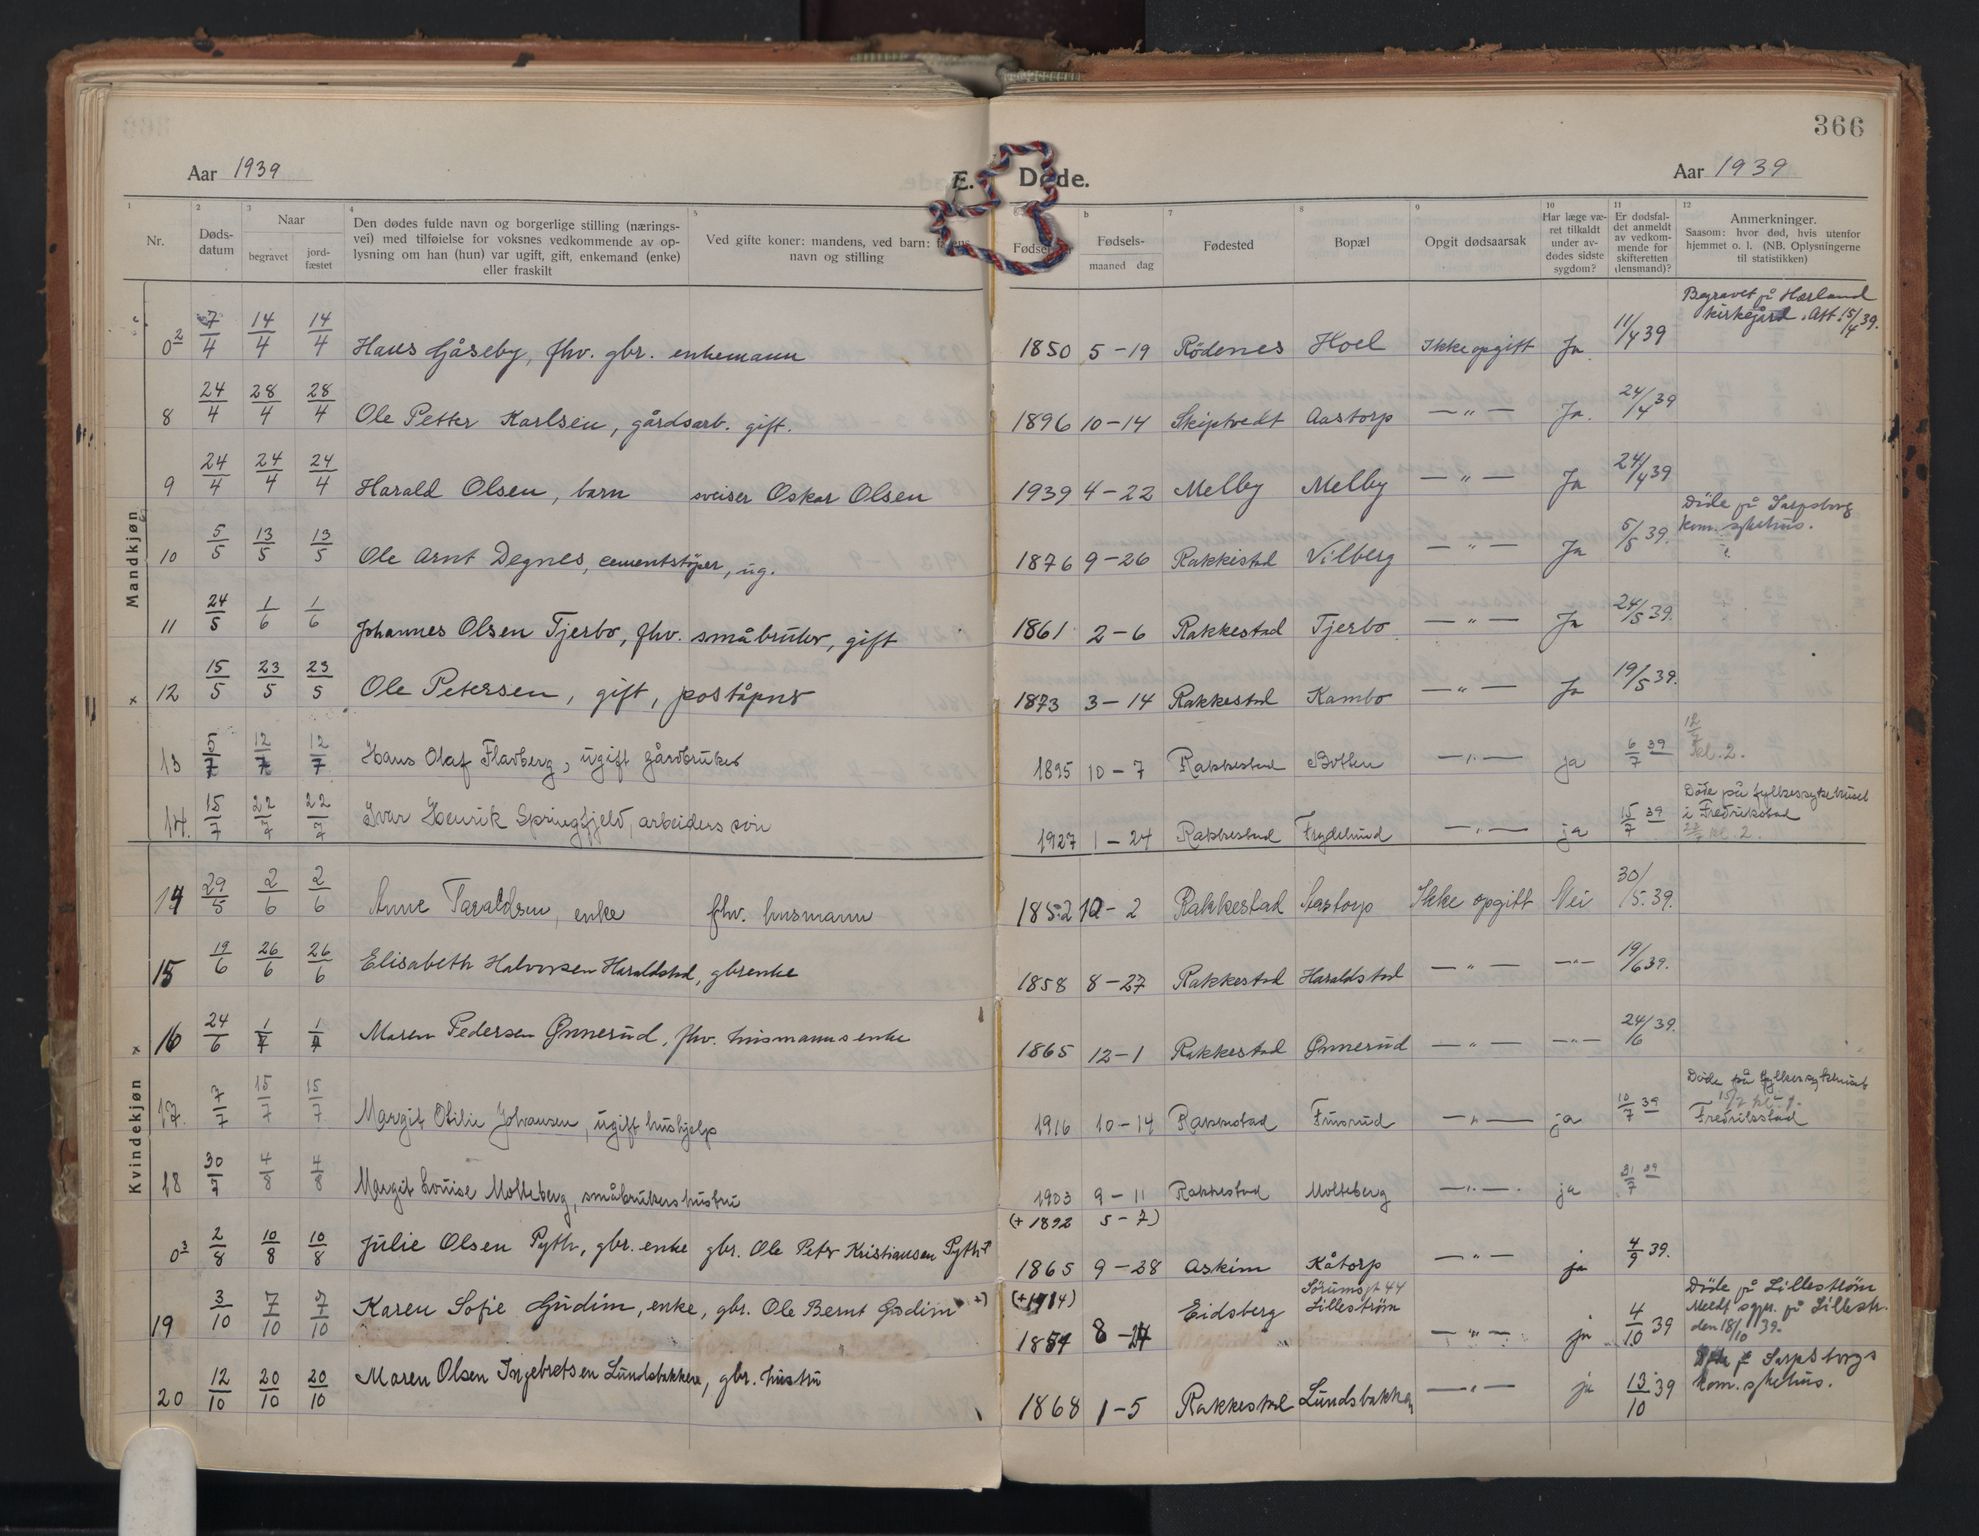 366
Aar 1939 E. Døde. Aar 1939
1 2 3 4 5 b 7 8 9 10 11 12
Nr. Døds-datum Naar begravet jord-fæstet Den dødes fulde navn og borgerlige stilling (nærings-vei) med tilføielse for voksnes vedkommende av op-lysning om han (hun) var ugift, gift, enkemand (enke) eller fraskilt Ved gifte koner: mandens, ved barn: navn og stilling Fødsels-maaned dag Fødested Bopæl Opgit dødsaarsak Har læge væ-ret tilkaldt under av-dødes sidste sygdom? Er dødsfal-det anmeldt av vedkom-mende for skifteretten (lensmand)? Anmerkninger. Saasom: hvor død, hvis utenfor hjemmet o. l. (NB. Oplysningerne til statistikken)
Mandkjøn
0 2 7/4 14/4 14/4 Hans Gåseby, fhv. gbr. enkemann 1850 5-19 Rödenes Hoel Ikke opgitt Ja. 11/4 39 Begravet på Hærland kirkegård. Att. 15/4 39.
8 24/4 28/4 28/4 Ole Petter Karlsen, gårdsarb. gift. 1896 10-14 Skiptvedt Aastorp —"— Ja. 24/4 39
9 24/4 24/4 24/4 Harald Olsen, barn sveiser Oskar Olsen 1939 4-22 Melby Melby —"— Ja 24/4 39
10 5/5 13/5 13/5 Ole Arnt Degnes, cementstöper, ug. 1876 9-26 Rakkestad Vilberg —"— Ja 5/5 39. Döde på Sarpsborg kom. sykehus.
11 24/5 1/6 1/6 Johannes Olsen Tjerbo, fhv. småbruker, gift 1861 2-6 Rakkestad Tjerbo —"— Ja 24/5 39.
x 12 15/5 23/5 23/5 Ole Petersen, gift, poståpner 1873 3-14 Rakkestad Kambo —"— Ja 19/5 39.
13 5/7 12/7 12/7 Hans Olaf Flatberg, ugift gårdbruker 1895 10-7 Rakkestad —"— ja 6/7 39 12/7 kl. 2.
14. 15/7 22/7 22/7 Ivar Henrik Springfjeld, arbeiders søn 1927 1-24 Rakkestad Frydenlund —"— ja 15/7 39 Döde på fylkessykehuset i Fredrikstad kl. 2.
Kvindekjøn
14 29/5 2/6 2/6 Anne Taraldsen, enke fhv. husmann 1852 10-2 Rakkestad Aastorp Ikke opgitt Nei 30/5. 39.
15 19/6 26/6 26/6 Elisabeth Halvorsen Haraldstad, gbrenke 1858 8-27 Rakkestad Haraldstad —"— —"— 19/6 39.
x 16 24/6 1/7 1/7 Maren Pedersen Ønnerud, fhv. husmanns enke 1865 12-1 Rakkestad Ønnerud —"— —"— 24/6 39.
17. 7/7 15/7 15/7 Margit Otilie Johansen, ugift hushjelp 1916 10-14 Rakkestad Fuusrud —"— ja 10/7 39 Döde på fylkessykehuset 15/7 kl. Fredrikstad
18 30/7 4/8 4/8 Margit Lovise Molteberg, småbrukers hustru 1903 9-11 Rakkestad Molteberg —"— ja 31/7 39
(+ 1892 5-7)
0 3 2/8 10/8 10/8 Julie Olsen Pyth, gbr. enke gbr. Ole Petr Kristiansen Pyth + 1865 9-28 Askim Kåtorp —"— ja 4/9 39.
19 3/10 7/10 7/10 Karen Sofie Gudim, enke, gbr. Ole Bernt Gudim +) (+ 1914) 1854 8-24 Eidsberg Sörumsgt 44 Lilleström —"— ja 4/10 39 Döde på Lilleström Meldt sgpr. på Lillestr. den 18/10 39.
20 12/10 20/10 20/10 Maren Olsen Ingebretsen Lundsbakken, gbr. hustru 1868 1-5 Rakkestad Lundsbakken —"— ja 13/10 39 Döde på Sarpsborgs kom. sykehus.